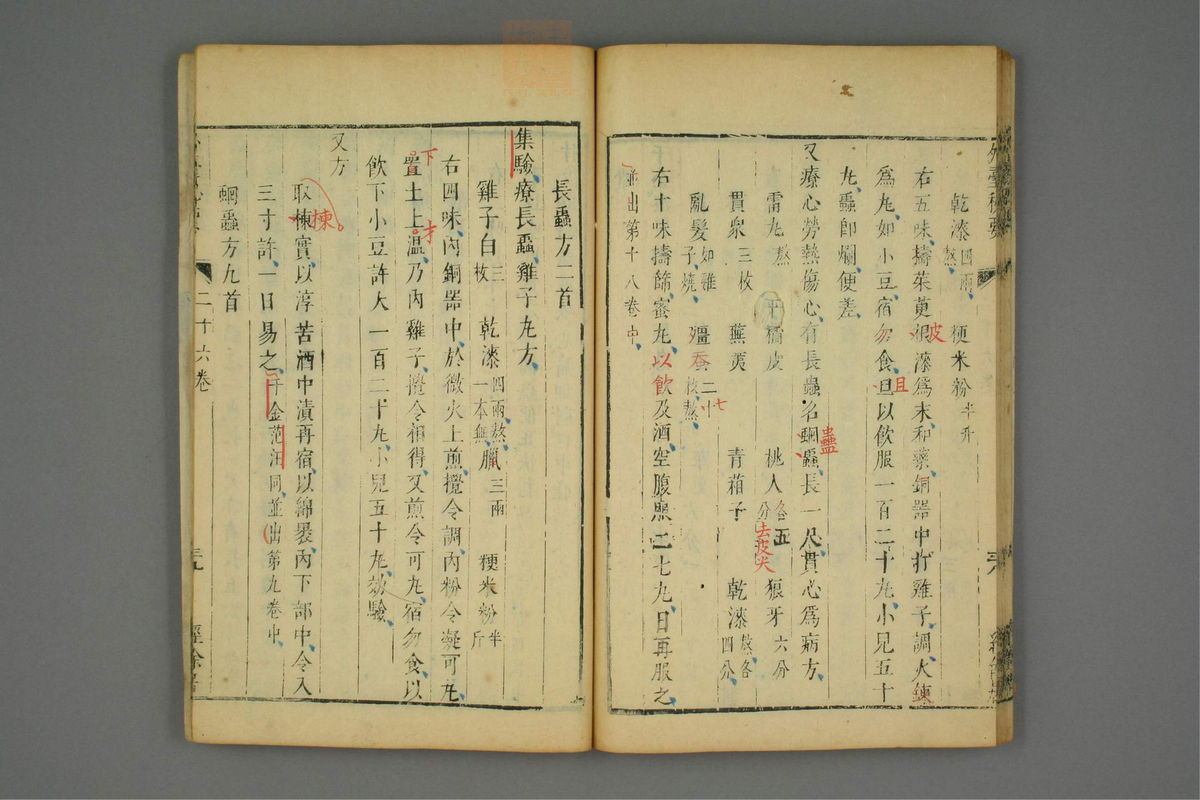 外臺秘要
乾漆四兩熬 粳米粉半升
右五味擣茱萸根漆為末和藥銅器中打雞子調火鍊
皮
為丸如小豆宿勿食旦以飲服一百二十丸小兒五十
且
丸蟲卽爛便差
又療心勞熱傷心有長蟲名蟲長一尺貫心為病方
蠱
雷丸熬 橘皮 桃人各五分 狼牙六分
平
去皮尖
貫衆三枚 蕪荑 青葙子 乾漆熬各四分
亂髮如雞子燒 殭蚕二十枚熬
七
右十味擣篩蜜丸以飲及酒空腹煕二七丸日再服之
並出第十八卷中
長蟲方二首
集驗療長蟲雞子丸方
雞子白三枚 乾漆四兩熬一本無 臘三兩 粳米粉半斤
右四味內銅器中於微火上煎攪令調內粉令凝可丸
下
置土上温乃內雞子攪令相得又煎令可丸宿勿食以
才
飲下小豆許大一百二十丸小兒五十丸效驗
又方
取楝實以淳苦酒中漬再宿以綿裹內下部中令入
楝
三寸許一日易之千金范汪同並出第九卷中
蛔蟲方九首
二十六卷